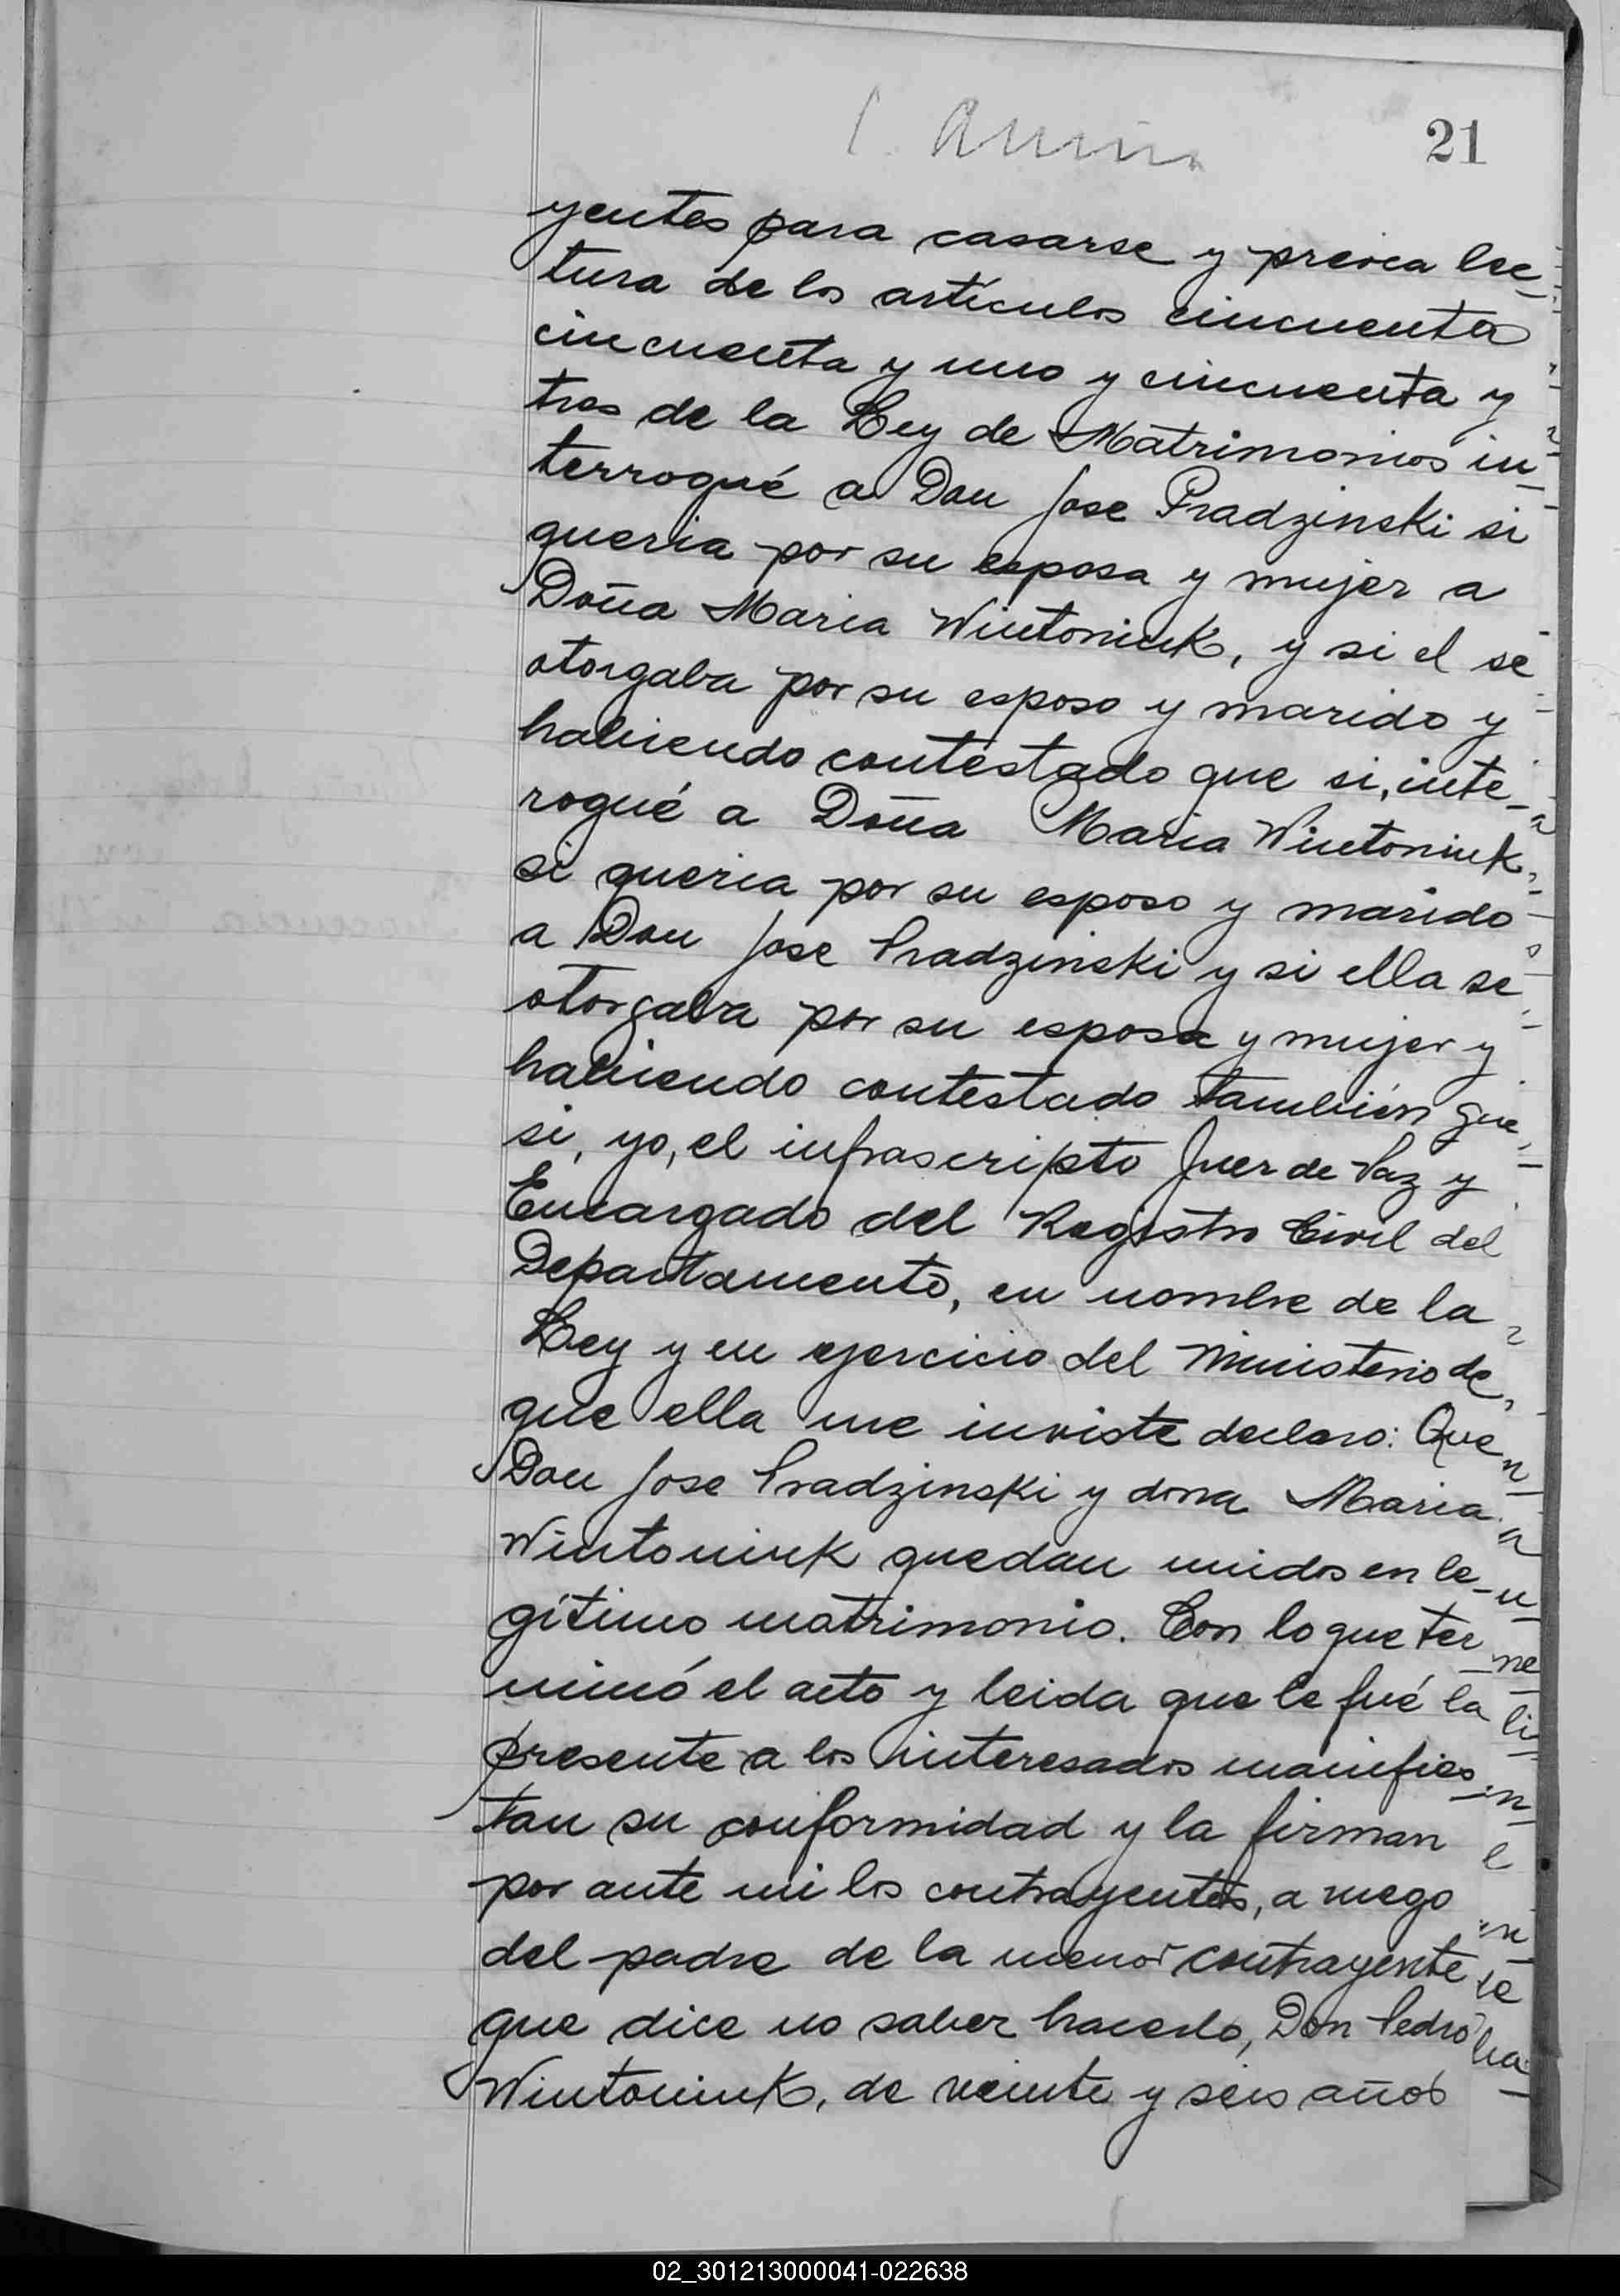 21
yentes para casarse y previa lec-
tura de los artículos cincuenta
cincuenta y uno y cincuenta y
tres de la Ley de Matrimonios in-
terrogué a Don Jose Pradzinski si
queria por su esposa y mujer a
Doña Maria Wintoniuk, y si el se
otorgaba por su esposo y marido y
habiendo contestado que si, inte-
rogué a Doña Maria Wintoniuk
si queria por su esposo y marido
a Don Jose Pradzinski y si ella se
otorgaba por su esposa y mujer y
habiendo contestado también que
si, yo, el infrascripto Juez de Paz y
Encargado del Registro Civil del
Departamento, en nombre de la
Ley y en ejercicio del Ministerio de
que ella me inviste declaro: Que
Don Jose Pradzinski y dona Maria
Wintoniuk quedan unidos en le-
gítimo matrimonio. Con lo que ter
minó el acto y leida que le fué la
presente a los interesados manifies-
tan su conformidad y la firman
por ante mi los contrayentes, a ruego
del padre de la menor contrayente
que dice no saber hacerlo, Don Pedro
Wintoniuk, de veinte y seis años
02_301213000041-022638